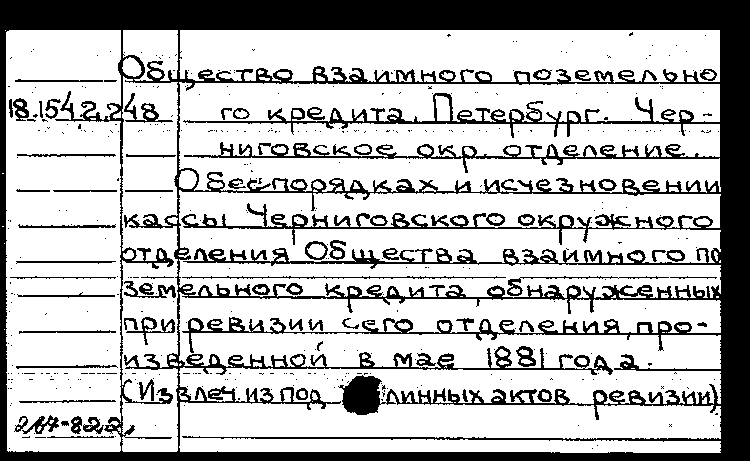 Общество взаимного поземельно
18.154.2.248 го кредита. Петербург. Чер-
ниговское окр. отделение.
О беспорядках и исчезновении
кассы Черниговского окружного
отделения Общества взаимного по
земельного кредита, обнаруженных
при ревизии сего отделения, про-
изведенной в мае 1881 года.
(Извлеч из под линных актов ревизии)